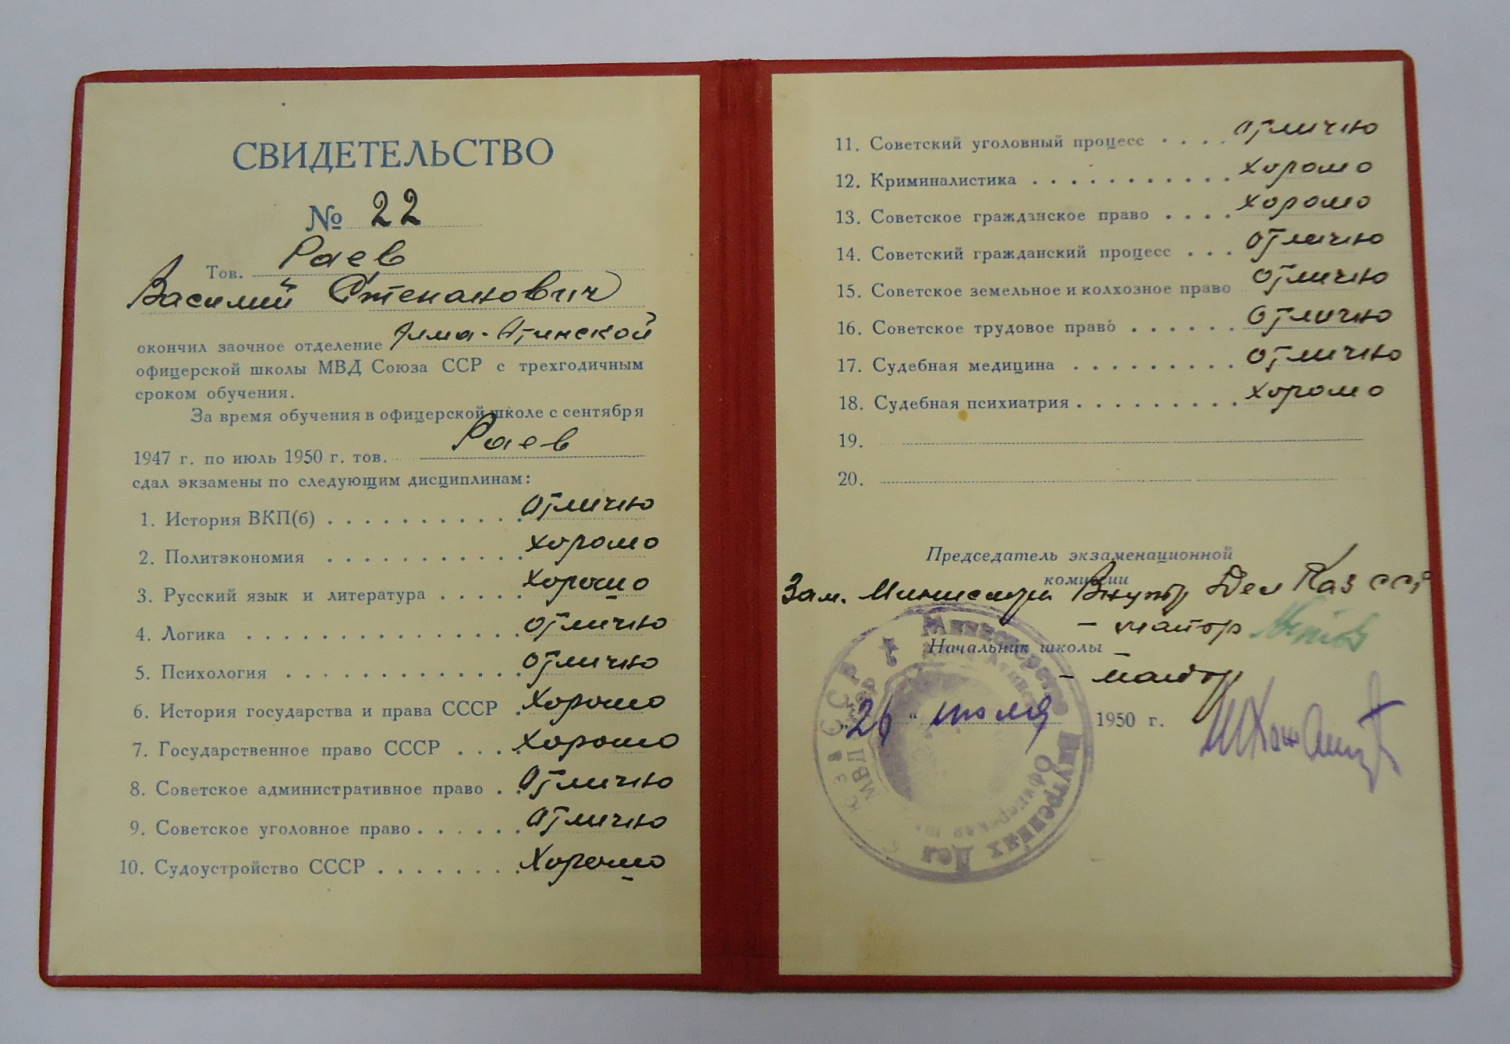 СВИДЕТЕЛЬСТВО
№ 22
Тов. Раев
Василий Степанович
окончил заочное отделение Алма-Атинской
офицерской школы МВД Союза ССР с трехгодичным
сроком обучения.
За время обучения в офицерской школе с сентября
1947 г. по июль 1950 г. тов. Раев
сдал экзамены по следующим дисциплинам:
1. История ВКП(б) . . . . . . . . . . . отлично
2. Политэкономия . . . . . . . . . . . хорошо
3. Русский язык и литература . . . . . хорошо
4. Логика . . . . . . . . . . . . . . . отлично
5. Психология . . . . . . . . . . . . . отлично
6. История государства и права СССР . хорошо
7. Государственное право СССР . . . . хорошо
8. Советское административное право . . отлично
9. Советское уголовное право . . . . . . отлично
10. Судоустройство СССР . . . . . . . . хорошо
11. Советский уголовный процесс . . . . отлично
12. Криминалистика . . . . . . . . . . . хорошо
13. Советское гражданское право . . . . хорошо
14. Советский гражданский процесс . . . отлично
15. Советское земельное и колхозное право отлично
16. Советское трудовое право . . . . . . отлично
17. Судебная медицина . . . . . . . . . отлично
18. Судебная психиатрия . . . . . . . . . хорошо
19.
20.
Председатель экзаменационной
комиссии
Зам. Министра Внутр Дел Каз ССР
- майор
Начальник школы
- майор
"26" июля 1950 г.
Министерство Внутренних Дел СССР
МВД Офицерская